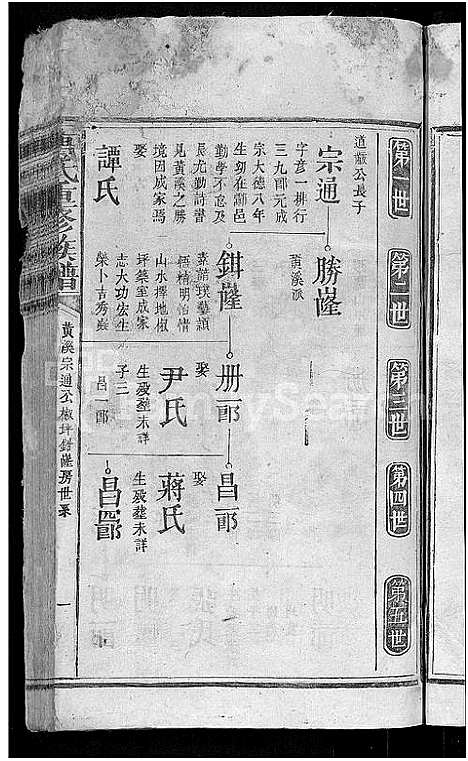 第一世
第二世
第三世
第四世
第五世
道巖公長子
宗通
字彥一排行
三九郎元成
宗大德八年
生幼在瀏邑
勤學不怠及
長尤勤詩書
見黃溪之勝
境因成家焉
娶
譚氏
勝嶐
黃溪派
鉗嶐
素諳璞藝穎
悟精明怡情
山水擇地椒
坪築室成家
志大功宏生
榮卜吉秀
冊一郎
娶
尹氏
生歿塟未詳
子三
昌一郎
昌二郎
娶
蔣氏
生歿塟未詳
昌四郎
氏重修族譜
黃溪宗通公椒坪鉗嶐房世系
一